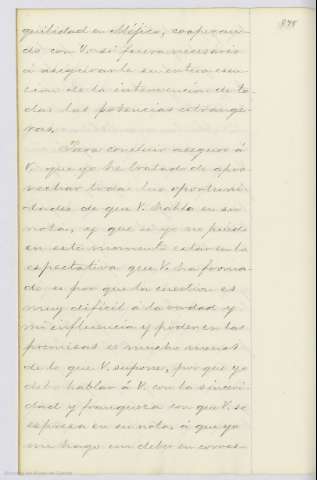 878
quilidad en Méjico, cooperan-
do con V. si fuera necesario
á asegurarla su entera esen-
cion de la intervencion de to-
das las potencias estrange-
ras.
Para concluir aseguro á
V. que yo he tratado de apro-
vechar todas las oportuni-
dades de que V. habla en su
nota, y que si yo no puedo
en este momento estar en la
espectativa que V. ha forma-
do es por que la cuestion es
muy difícil á la verdad y
mi influencia y poder en las
premisas es mucho menos
de lo que V. supone, por que yo
debo hablar á V. con la sinceri-
dad y franqueza con que V. se
espresa en su nota, á que yo
me hago un deber en corres-